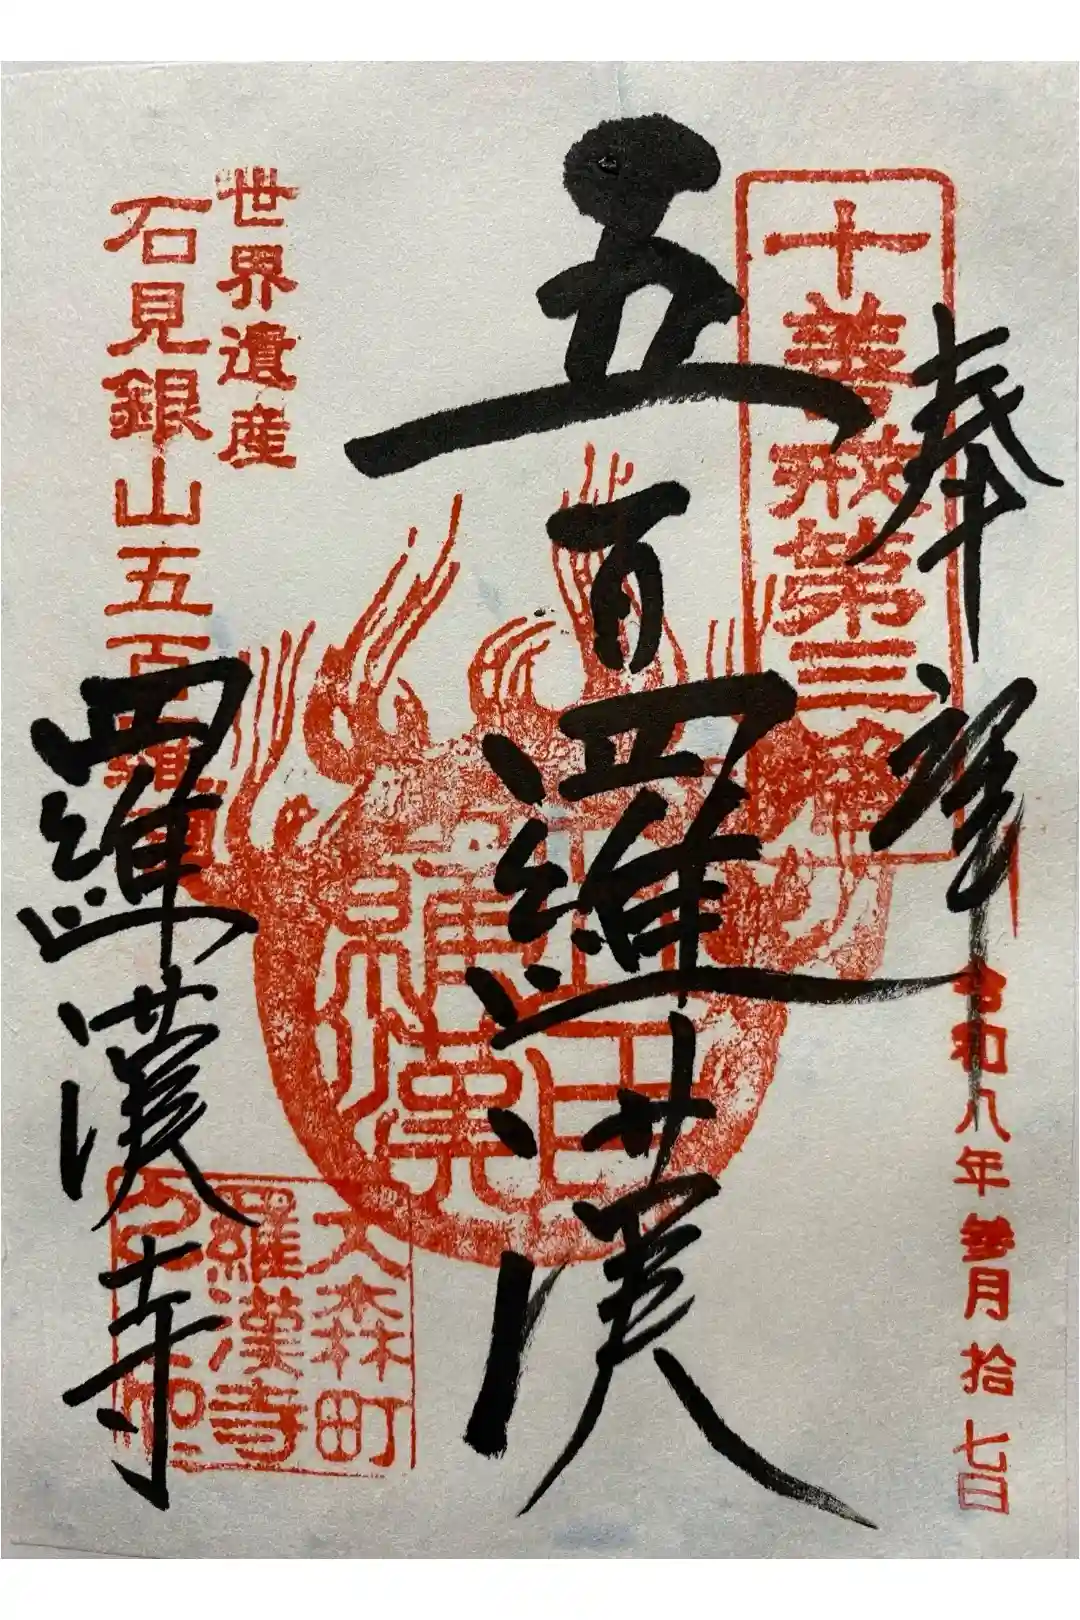 奉拝
令和八年参月拾七日
十善戒第三番
五百羅漢
世界遺産
石見銀山五百羅漢
羅漢寺
大森町
羅漢寺